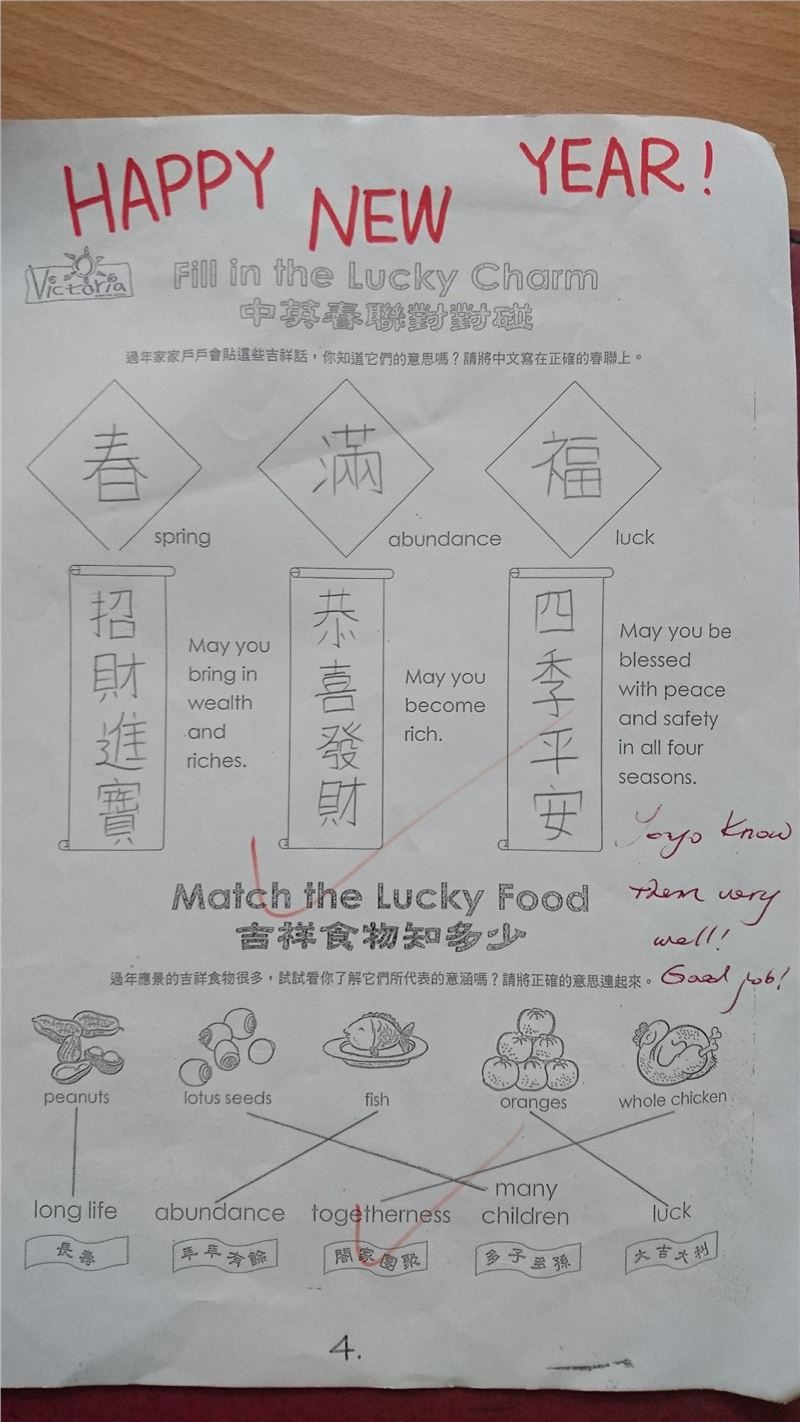 HAPPY NEW YEAR!
Victoria
Fill in the Lucky Charm
中英春聯對對碰
過年家家戶戶會貼這些吉祥話，你知道它們的意思嗎？請將中文寫在正確的春聯上。
春
spring
滿
abundance
福
luck
招財進寶
May you
bring in
wealth
and
riches.
恭喜發財
May you
become
rich.
四季平安
May you be
blessed
with peace
and safety
in all four
seasons.
Yoyo Know
them very
well!
Good job!
Match the Lucky Food
吉祥食物知多少
過年應景的吉祥食物很多，試試看你了解它們所代表的意涵嗎？請將正確的意思連起來。
peanuts
lotus seeds
fish
oranges
whole chicken
long life
abundance
togetherness
many
children
luck
長壽
年年有餘
闔家團聚
多子多孫
大吉大利
4.